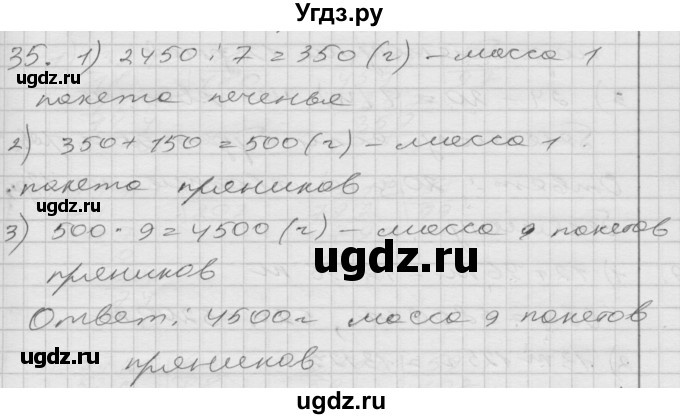 Угдз.ру
35. 1) 2450 : 7 = 350 (г) – масса 1
ugdz.ru
пакета печенья
2) 350 + 150 = 500 (г) – масса 1
пакета пряников
ugdz.ru
3) 500 · 9 = 4500 (г) – масса 9 пакетов
ugdz.ru
пряников
Ответ: 4500г, масса 9 пакетов
ugdz.ru
пряников